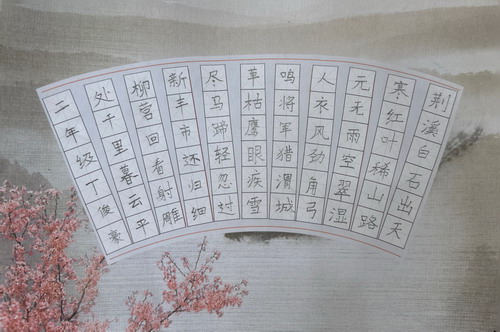 荆溪白石出天
寒红叶稀山路
元无雨空翠湿
人衣风劲角弓
鸣将军猎渭城
草枯鹰眼疾雪
尽马蹄轻忽过
新丰市还归细
柳营回看射雕
处千里暮云平
二年级丁俊豪